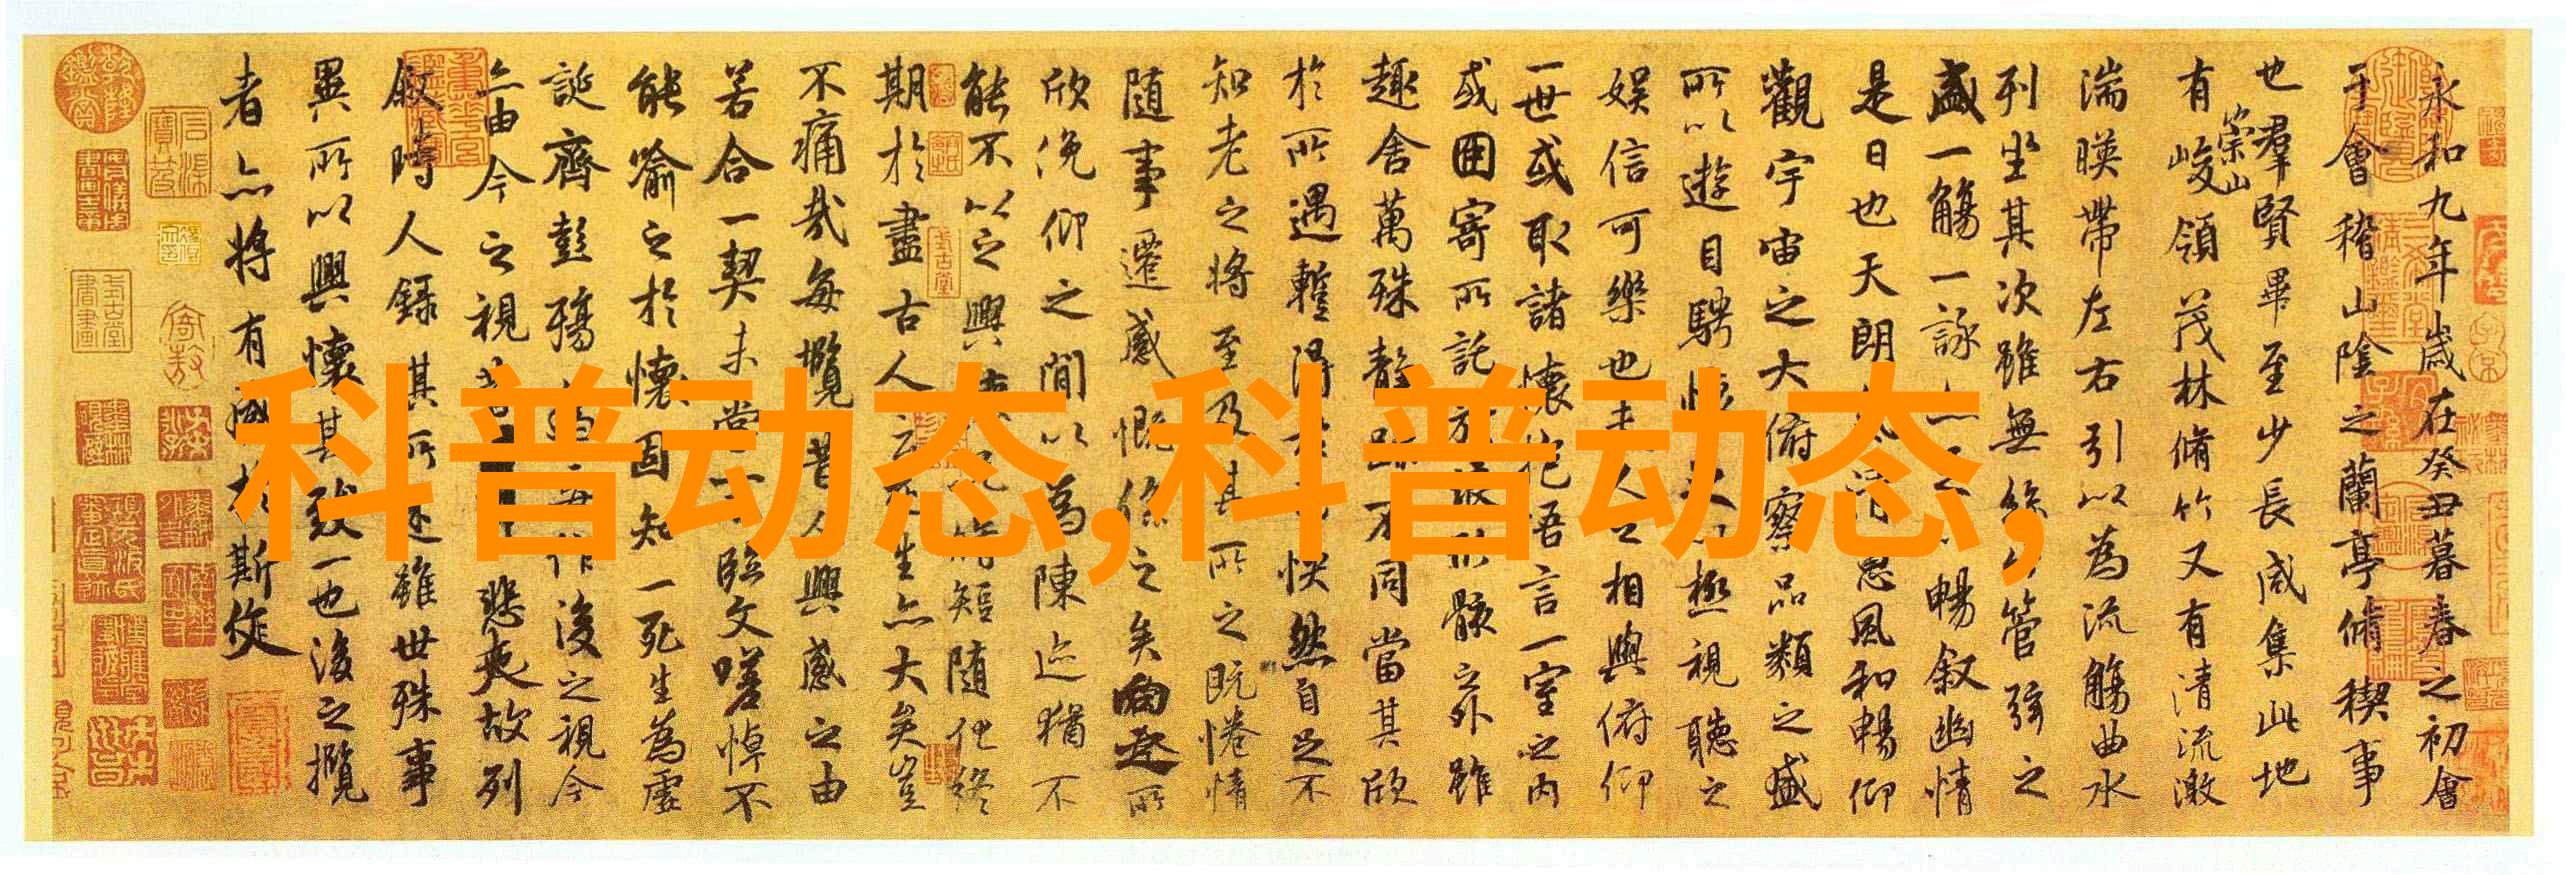 科普动态,科普动态,
永和九年歲在癸丑暮春之初會
于會稽山陰之蘭亭脩稧事
也羣賢畢至少長咸集此地
有崇山峻領茂林脩竹又有清流激
湍暎帶左右引以為流觴曲水
列坐其次雖無絲竹管弦之
盛一觴一詠亦足以暢叙幽情
是日也天朗清惠風和暢仰
觀宇宙之大俯察品類之盛
所以遊目騁懷足以極視聽之
娛信可樂也夫人之相與俯仰
一世或取諸懷抱悟言一室之內
或因寄所託放浪形骸之外雖
趣舍萬殊靜躁不同當其欣
於所遇蹔得於己怏然自足不
知老之將至及其所之既惓情
隨事遷感慨係之矣向之所
欣俛仰之閒以為陳迹猶不
能不以之興懷況脩短隨化終
期於盡古人云死生亦大矣豈
不痛哉每攬昔人興感之由
若合一契未嘗不臨文嗟悼不
能喻之於懷固知一死生為虛
誕齊彭殤為妄作後之視今
亦由今之視昔悲夫故列
叙時人錄其所述雖世殊事
異所以興懷其致一也後之攬
者亦將有感於斯文